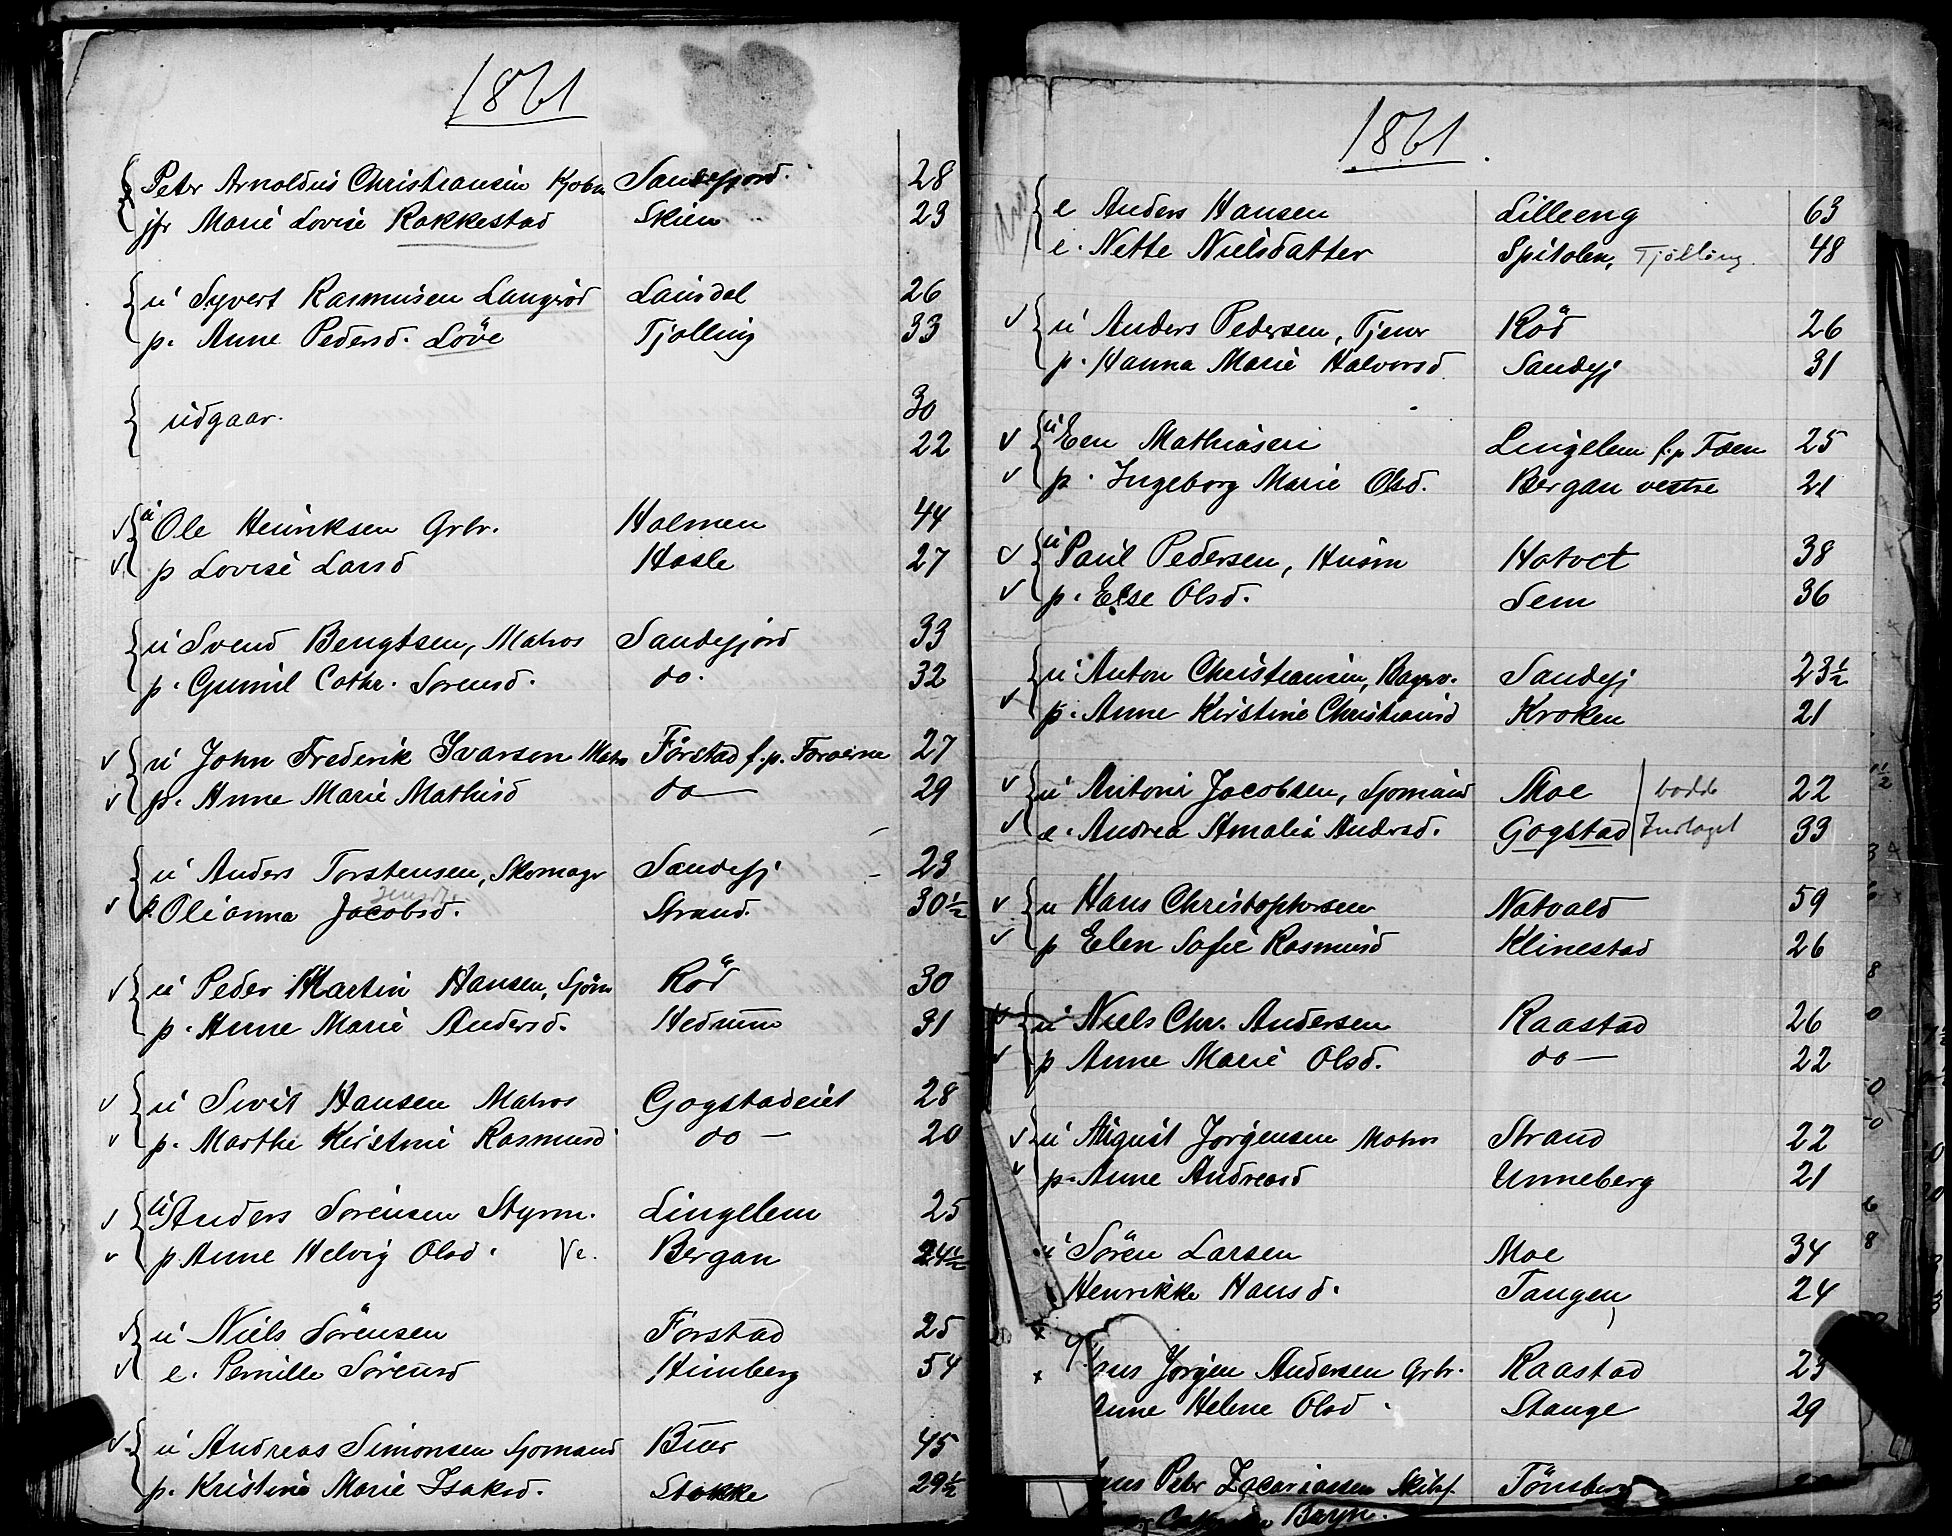 1861
Peter Arnoldus Christiansen Kjobm Sandefjord. 28
jfr Marie Lovise Rakkestad Skien 23
u Syvert Rasmusen Langerød 26
p. Anne Pedersd. Löve Tjølling 33
udgaar. 30
22
u Ole Henriksen Grbr. Holmen 44
p Lovise Larsd Hasle 27
u Svend Bengtsen, Matros Sandefjord 33
p. Gunnil Cathr. Sorensd. do. 32
u John Frederik Ivarson Matr Förstad f.p. 27
p. Anne Marie Mathisd do 29
u Anders Torstensen, Skomagr Sandefj 23
p. Olianna Jacobsd. Strand. 30½
u Peder Martin Hansen, Sjöm Röd 30
p. Anne Marie Andersd. Hedrum 31
u Sivert Hansen Matros Gogstadeiet 28
p. Marthe Kirstine Rasmusd do 20
u Anders Sorensen Styrm. Lingelem 25
p Anne Helvig Olsd. Ve. Bergan 24½
u Niels Sörensen Forstad 25
e. Pernille Sörensd Himberg 54
u Andreas Simonsen Sjomand Buer 45
p. Kristine Marie Isaksd. Stokke 29½
1861.
e Anders Hansen Lilleeng 63
e. Nette Nielsdatter Spitolen, Tjölling. 48
u Anders Pedersen, Tjener Röd 26
p. Hanna Marie Halvorsd Sandefj 31
u Even Mathiasen Lingelem f.p Fæen 25
p. Ingeborg Marie Olsd. Bergan vestre 21
u Paul Pedersen, Husm Hotvet 38
p. Else Olsd. Sem 36
u Anton Christiansen, Sandefj 23½
p. Anne Kirstine Christiansd Kroken 21
u Antoni Jacobsen, Sjomand Moe bodde 22
e. Andrea Amalia Andersd. Gogstad 33
u Hans Christophersen Natvald 59
p Elen Sofie Rasmusd Klinestad 26
u Niels Chr. Andersen Raastad 26
p Anne Marie Olsd. do 22
u August Jorgensen Matros Strand 22
p. Anne Andreasd Unneberg 21
u Sören Larsen Moe 34
Henrikke Hansd. Tangen 24
ans Jorgen Andersen Grbr. Raastad 23
Anne Helene Olsd Stange 29
ans Peter Zacariassen Skibsf. Tönsberg